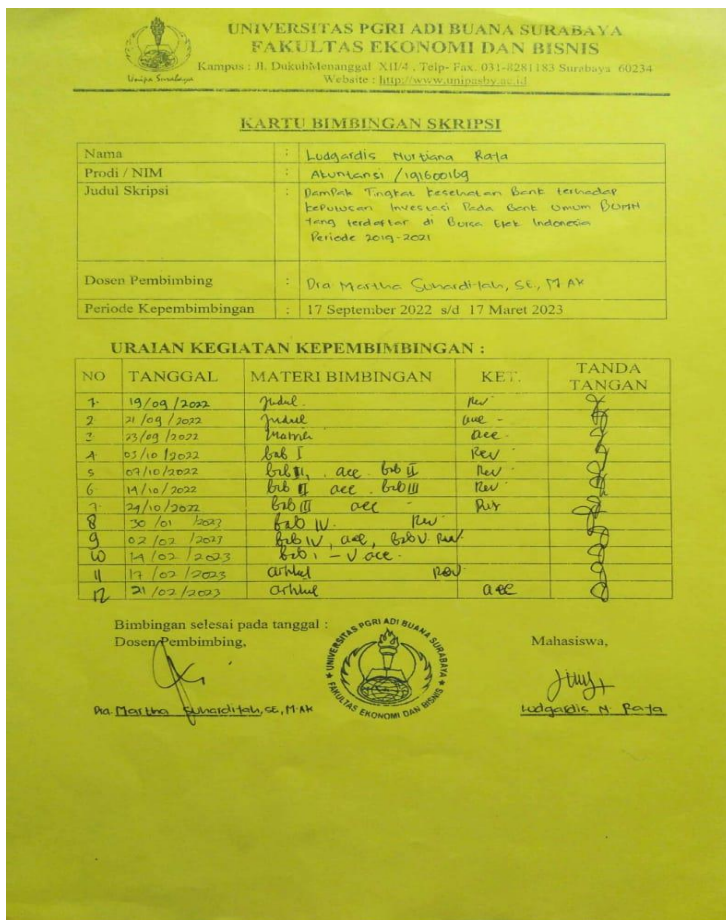 UNIVERSITAS PGRI ADI BUANA SURABAYA
FAKULTAS EKONOMI DAN BISNIS
Kampus : Jl. DukuhMenanggal XII/4 , Telp- Fax. 031-8281183 Surabaya 60234
Website : http://www.unipasby.ac.id
Unipa Surabaya
KARTU BIMBINGAN SKRIPSI
Nama : Ludgardis Nurtiana Raja
Prodi / NIM : Akuntansi / 191600169
Judul Skripsi : Dampak Tingkat kesehatan Bank terhadap
keputusan Investasi Pada Bank Umum BUMN
Yang terdaftar di Bursa Efek Indonesia
Periode 2019-2021
Dosen Pembimbing : Dra Martha Suhardiyah, SE, M AK
Periode Kepembimbingan : 17 September 2022 s/d 17 Maret 2023
URAIAN KEGIATAN KEPEMBIMBINGAN :
NO TANGGAL MATERI BIMBINGAN KET. TANDA TANGAN
1. 19/09/2022 Judul Rev
2 21/09/2022 Judul acc -
3 23/09/2022 Matrik acc -
4 03/10/2022 bab I Rev
5 07/10/2022 acc bab II Rev
6. 14/10/2022 bab II acc bab III Rev
7. 24/10/2022 bab III acc - Rev
8 30/01/2023 bab IV. Rev
9 02/02/2023 bab IV, acc, bab V. Rev
10 14/02/2023 bab I - V acc.
11 17/02/2023 artikel Rev
12 21/02/2023 artikel acc
Bimbingan selesai pada tanggal :
Dosen Pembimbing, Mahasiswa,
UNIVERSITAS PGRI ADI BUANA SURABAYA
FAKULTAS EKONOMI DAN BISNIS
Dra. Martha Suhardiyah, SE, M.Ak Ludgardis N. Raja